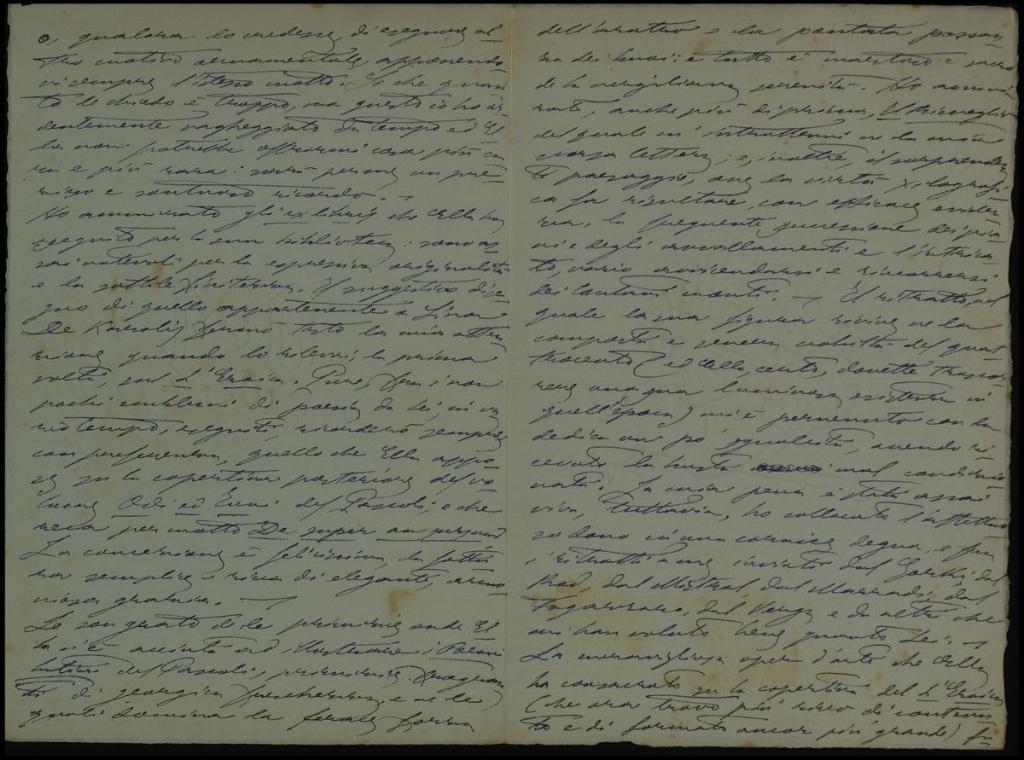 o, qualora lo credesse, di eseguire al
tro motivo ornamentale, apponendo
vi sempre l'istesso motto. So che quan
to le chiedo è troppo, ma questo io ho ar
dentemente vagheggiato da tempo ed El
la non potrebbe offrirmi cosa più ca
ra e più rara: sarà per me un pre
zioso e santuario ricordo. —
Ho ammirato gli ex libris che Ella ha
eseguito per la sua biblioteca: sono as
sai notevoli per la espressiva originalità
e la sottile finitezza. Il suggestivo dise
gno di quello appartenente a
De Karolis fermò tosto la mia atten
zione quando lo vidi la prima
volta, sul L'Eroica. Pure, fra i non
pochi emblemi di poesia da Lei, in va
rio tempo, eseguiti, ricorderò sempre,
con preferenza, quello che Ella appo
se su la copertina posteriore del vo
lume Odi ed Inni del Pascoli, e che
reca per motto De super an
La concezione è felicissima, la fattu
ra semplice e ricca di elegante, armo
niosa gratia. —
Le son grato de le premure onde El
la s'è accinto ad illustrare i Poemi
del Pascoli,
to di georgica freschezza e ne le
quali domina la ferale forza
dell'aratro e la pantata possan
za dei buoi: e tutto è maestoso e sacro
de la vergiliana serenità. Ho ammi
rato, anche più di prima, Il Risveglio
del quale m'intrattenni ne la mia
scorsa lettera; e, inoltre, il sorprenden
te paesaggio, ove la virtù xilografi
ca fa risultare, con efficace eviden
za, la frequente successione dei pia
ni e degli avvallamenti e l'intrica
to, vario avvicendarsi e rincorrersi
dei lontani monti. — Il ritratto, nel
quale la sua figura rivive ne la
composta e severa nobiltà del quat
trocento (ed Ella, certo, dovette trascor
rere una sua luminosa esistenza in
quell'epoca) mi è pervenuto con la
dedica un po' sgualcita, avendo ri
cevuto la busta mal condizio
nata. La mia pena è stata assai
viva, tuttavia, ho collocato l'affettuo
so dono in una cornice degna, e fra
i ritratti a me inviati dal Gorki, dal
Rod, dal Mistral, dal Marradi, dal
Fogazzaro, dal Verga e da altri che
mi han voluto bene quanto Lei. —
La meravigliosa opera d'arte che Ella
ha consacrato su la copertina del L'Eroica
(che ora trovo più ricco di contenu
to e di formato ancor più grande) fu